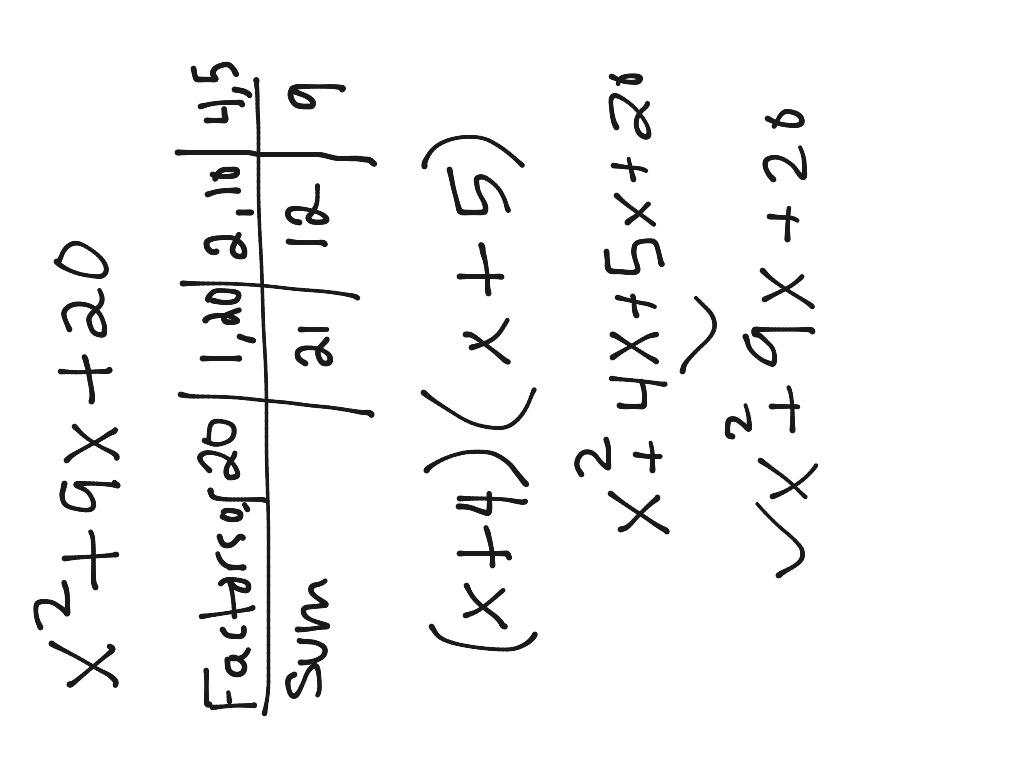 x² + 9x + 20
Factors of 20 | 1, 20 | 2, 10 | 4, 5
Sum | 21 | 12 | 9
(x + 4)(x + 5)
x² + 4x + 5x + 20
✓x² + 9x + 20